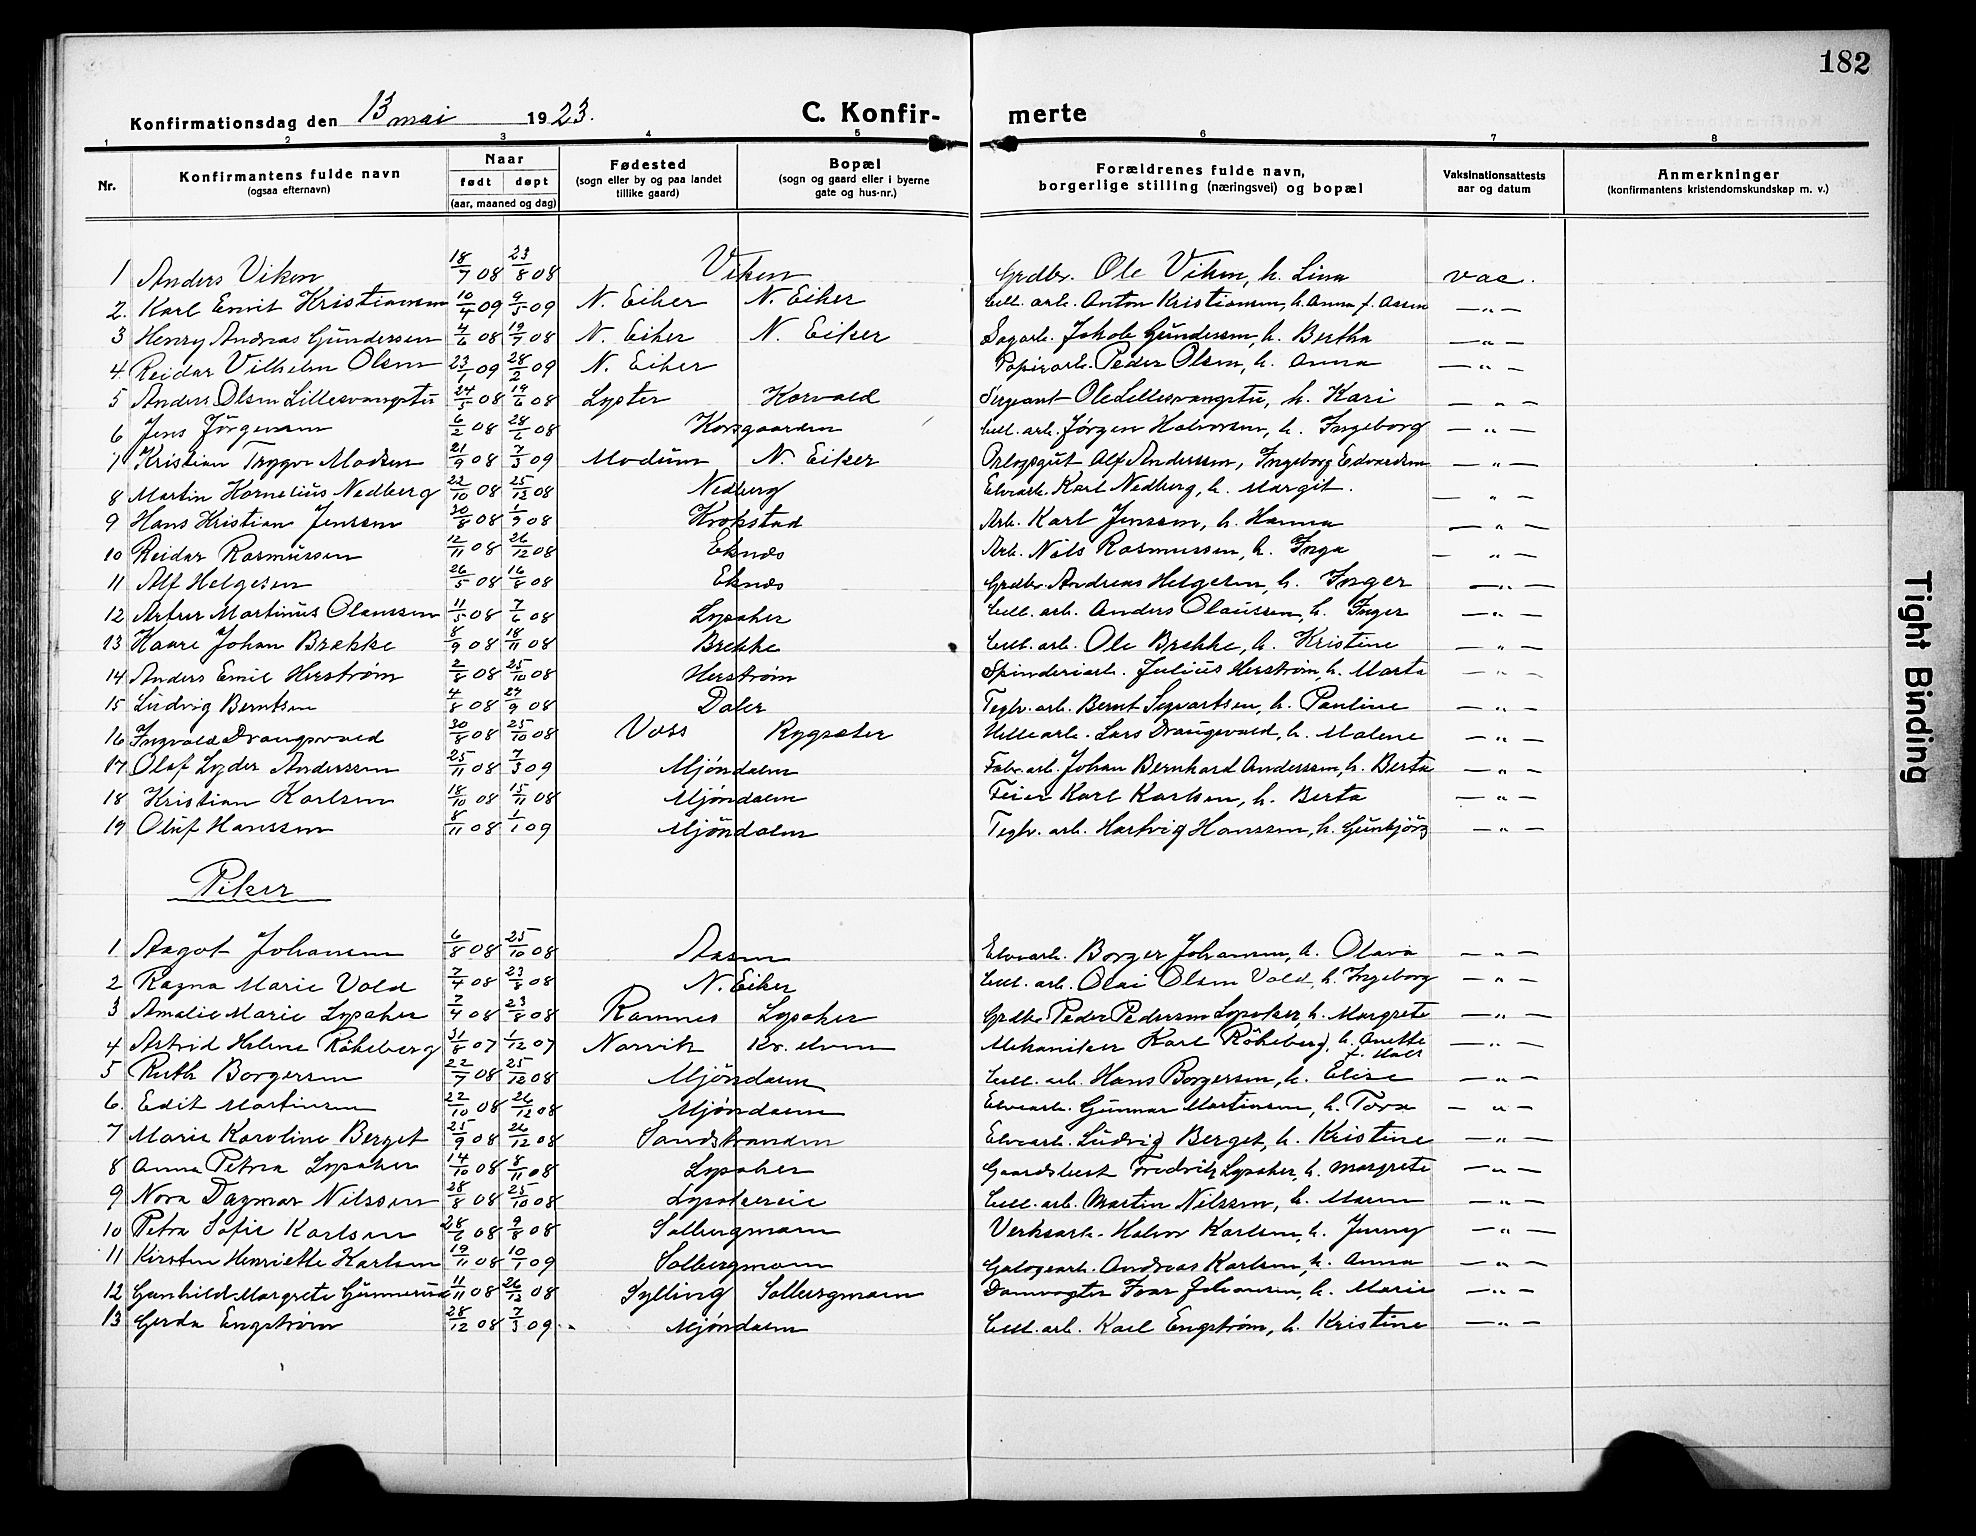 182
Konfirmationsdag den 13 mai 1923. C. Konfir- merte
1 2 3 4 5 6 7 8
Nr. Konfirmantens fulde navn (ogsaa efternavn) Naar født døpt (aar, maaned og dag) Fødested (sogn eller by og paa landet tillike gaard) Bopæl (sogn og gaard eller i byerne gate og hus-nr.) Forældrenes fulde navn, borgerlige stilling (næringsvei) og bopæl Vaksinationsattests aar og datum Anmerkninger (konfirmantens kristendomskundskap m. v.)
1 Anders Viken 18/7 08 23/8 08 Viken Grdbr. Ole Viken, h. Lina vac.
2. Karl Emil Kristiansen 10/4 09 9/5 09 N. Eiker N. Eiker Cell. arb. Anton Kristiansen, h. Anna f. Assen — „ —
3 Henry Andreas Gundersen 4/6 08 19/7 08 N. Eiker N. Eiker Sagarb. Jakob Gundersen, h. Bertha — „ —
4. Reidar Vilhelm Olsen 23/1 09 28/2 09 N. Eiker Papirarb. Peder Olsen, h. Anna — „ —
5 Anders Olsen Lillesvangstu 24/5 08 19/6 08 Lyster Korvald Sergeant Ole Lillesvangstu, h. Kari — „ —
6 Jens Jörgensen 6/2 08 28/6 08 Korsgaarden Cell. arb. Jörgen Halvorsen, h. Ingeborg — „ —
7 Kristian Trygve Madsen 21/9 08 7/3 09 Modum N. Eiker Alf Anderssen, Ingeborg Edvardsen — „ —
8 Martin Kornelius Nedberg 22/10 08 25/12 08 Nedberg Elvearb. Karl Nedberg, h. Margit. — „ —
9 Hans Kristian Jenssen 30/8 08 1/9 08 Krokstad Arb. Karl Jenssen, h. Hanna — „ —
10 Reidar Rasmussen 12/11 08 26/12 08 Eknes Arb. Nils Rasmussen, h. Inga — „ —
11 Alf Helgesen 26/5 08 16/8 08 Eknes Grdbr. Andreas Helgesen, h. Inger — „ —
12 Artur Martinus Olaussen 11/5 08 7/6 08 Lysaker Cell. arb. Anders Olaussen, h. Inger — „ —
13 Kaare Johan Brekke 8/9 08 18/11 08 Brekke Cell. arb. Ole Brekke, h. Kristine — „ —
14 Anders Emil Herström 2/8 08 25/10 08 Herstrøm Spinderiarb. Julius Herstrøm, h. Marta — „ —
15 Ludvig Berntsen 4/8 08 27/9 08 Daler Teglv. arb. Bernt Sigvartsen, h. Pauline — „ —
16 Ingvald Draugsvold 30/8 08 25/10 08 Voss Rygsæter Lars Draugsvold, h. Malene — „ —
17 Olaf Lyder Anderssen 25/11 08 7/3 09 Mjöndalen Fabr. arb. Johan Bernhard Anderssen, h. Berta — „ —
18 Kristian Karlsen 18/10 08 15/11 08 Mjöndalen Feier Karl Karlsen, h. Berta — „ —
19 Oluf Hanssen 8/11 08 1/1 09 Mjöndalen Teglv. arb. Hartvig Hanssen, h. Gunbjörg — „ —
Piker
1 Aagot Johansen 6/8 08 25/10 08 Aasen Elvearb. Borger Johansen, h. Olava — „ —
2 Ragna Marie Vold 7/4 08 23/8 08 N. Eiker Cell. arb. Olai Olsen Vold, h. Ingeborg — „ —
3 Amalie Marie Lysaker 7/4 08 23/8 08 Ramnes Lysaker Grdbr. Peder Pedersen Lysaker, h. Margrete — „ —
4 Astrid Helene Röheberg 31/8 07 1/12 07 Narvik Kr. elven Mekaniker Karl Röheberg, h. Anette — „ —
5 Ruth Borgersen 22/7 08 25/12 08 Mjöndalen Cell. arb. Hans Borgersen, h. Elise — „ —
6. Edit Martinsen 22/10 08 26/12 08 Mjöndalen Elvearb. Gunnar Martinsen, h. Tora — „ —
7 Marie Karoline Berget 25/9 08 26/12 08 Sandstranden Elvearb. Ludvig Berget, h. Kristine — „ —
8 Anna Petrea Lysaker 14/10 08 8/11 08 Lysaker Gaardsbest. Fredrik Lysaker, h. Margrete — „ —
9 Nora Dagmar Nilssen 28/8 08 25/10 08 Lysakereie Cell. arb. Martin Nilssen, h. Maren — „ —
10 Petra Sofie Karlsen 28/6 08 9/8 08 Solbergmoen Verksarb. Halvor Karlsen, h. Jenny — „ —
11 Kirsten Henriette Karlsen 19/11 08 10/1 09 Solbergmoen Andreas Karlsen, h. Anna — „ —
12 Gunhild Margrete Gunnerius 11/11 08 26/12 08 Sylling Solbergmoen Damvogter Ivar Johansen, h. Marie — „ —
13 Gerda Engström 28/12 08 7/3 09. Mjöndalen Cell. arb. Karl Engstrøm, h. Kristine — „ —
Tight Binding